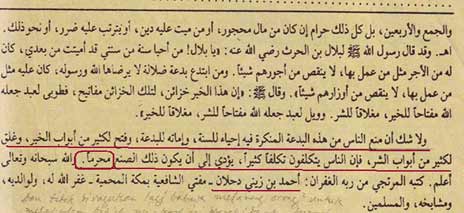 والجمع والأربعين، بل كل ذلك حرام إن كان من مال محجور، أو من ميت عليه دين، أو يترتب عليه ضرر، أو نحو ذلك.
اهـ. وقد قال رسول الله ﷺ لبلال بن الحرث رضي الله عنه: «يا بلال! من أحيا سنة من سنتي قد أميتت من بعدي، كان
له من الأجر مثل من عمل بها، لا ينقص من أجورهم شيئاً. ومن ابتدع بدعة ضلالة لا يرضاها الله ورسوله، كان عليه مثل
من عمل بها، لا ينقص من أوزارهم شيئاً». وقال ﷺ: «إن هذا الخير خزائن، لتلك الخزائن مفاتيح، فطوبى لعبد جعله
الله مفتاحاً للخير، مغلاقاً للشر. وويل لعبد جعله الله مفتاحاً للشر، مغلاقاً للخير».
ولا شك أن منع الناس من هذه البدعة المنكرة فيه إحياء للسنة، وإماتة للبدعة، وفتح لكثير من أبواب الخير، وغلق
لكثير من أبواب الشر، فإن الناس يتكلفون تكلفاً كثيراً، يؤدي إلى أن يكون ذلك الصنع محرماً. والله سبحانه وتعالى
أعلم. كتبه المرتجي من ربه الغفران: أحمد بن زيني دحلان ـ مفتي الشافعية بمكة المحمية ـ غفر الله له، ولوالديه،
ومشايخه، والمسلمين.